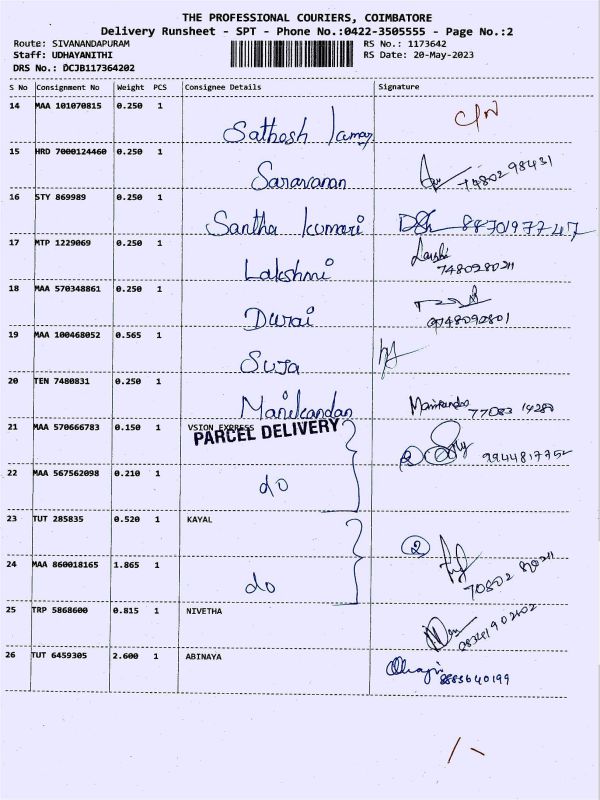 THE PROFESSIONAL COURIERS, COIMBATORE
Delivery Runsheet - SPT - Phone No.:0422-3505555 - Page No.:2
Route: SIVANANDAPURAM RS No.: 1173642
Staff: UDHAYANITHI RS Date: 20-May-2023
DRS No.: DCJB117364202
S No Consignment No Weight PCS Consignee Details Signature
14 MAA 101070815 0.250 1
Sathosh
15 HRD 7000124460 0.250 1
Saravanan 7480298431
16 STY 869989 0.250 1
Santha Kumari 8870197747
17 MTP 1229069 0.250 1
Lakshmi 7480280211
18 MAA 570348861 0.250 1
Durai 9748092801
19 MAA 100468052 0.565 1
Suja
20 TEN 7480831 0.250 1
Manikandan 77083 14280
21 MAA 570666783 0.150 1 VSION EXPRESS
PARCEL DELIVERY
2 9944817752
22 MAA 567562098 0.210 1
do
23 TUT 285835 0.520 1 KAYAL
2
24 MAA 860018165 1.865 1
do
25 TRP 5868600 0.815 1 NIVETHA
26 TUT 6459305 2.600 1 ABINAYA
8883640199